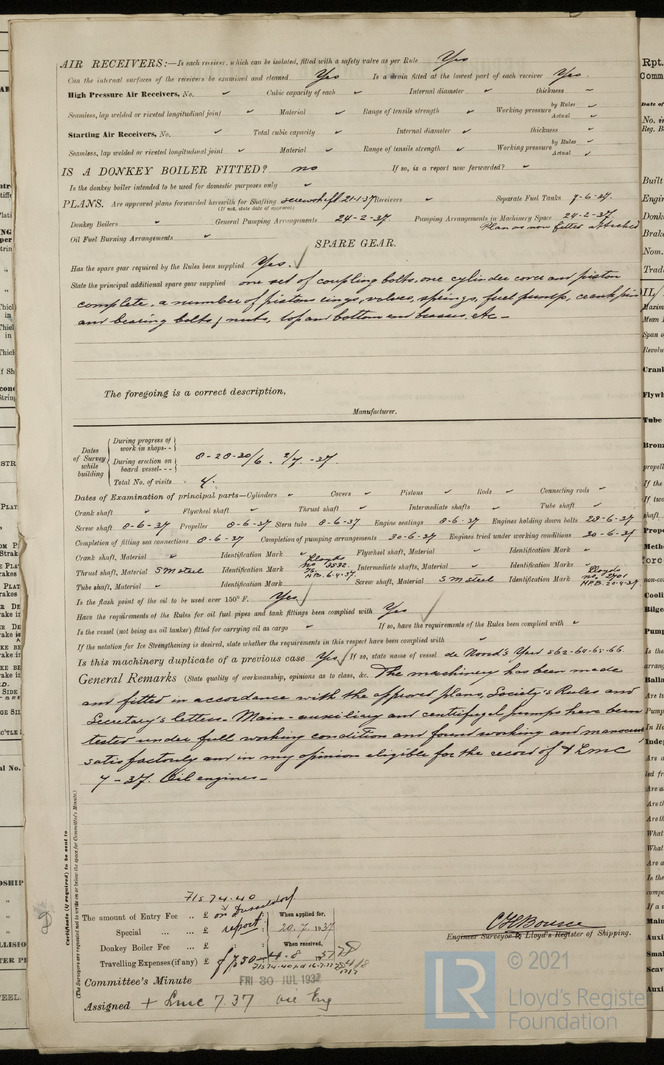 AIR RECEIVERS:—Is each receiver, which can be isolated, fitted with a safety valve as per Rule Yes
Can the internal surfaces of the receivers be examined and cleaned Yes Is a drain fitted at the lowest part of each receiver Yes.
High Pressure Air Receivers, No. ✓ Cubic capacity of each ✓ Internal diameter ✓ thickness ✓
Seamless, lap welded or riveted longitudinal joint ✓ Material ✓ Range of tensile strength ✓ Working pressure by Rules ✓ Actual ✓
Starting Air Receivers, No. ✓ Total cubic capacity ✓ Internal diameter ✓ thickness ✓
Seamless, lap welded or riveted longitudinal joint ✓ Material ✓ Range of tensile strength ✓ Working pressure by Rules ✓ Actual ✓
IS A DONKEY BOILER FITTED? no If so, is a report now forwarded? ✓
Is the donkey boiler intended to be used for domestic purposes only ✓
PLANS. Are approved plans forwarded herewith for Shafting screwshaft 21-1-37 Receivers ✓ Separate Fuel Tanks 7-6-37.
(If not, state date of approval)
Donkey Boilers ✓ General Pumping Arrangements 24-2-37 Pumping Arrangements in Machinery Space 24-2-37
Plan as now fitted attached
Oil Fuel Burning Arrangements ✓
SPARE GEAR.
Has the spare gear required by the Rules been supplied Yes.
State the principal additional spare gear supplied one set of coupling bolts, one cylinder cover and piston
complete. a number of pistons rings, valves, springs, fuel pump, crank pin
and bearing bolts & nuts, top and bottom end brasses. etc -
The foregoing is a correct description,
Manufacturer.
Dates of Survey while building
During progress of work in shops - -
During erection on board vessel - - - 8-28-30/6. 2/7. -37.
Total No. of visits 4.
Dates of Examination of principal parts—Cylinders ✓ Covers ✓ Pistons ✓ Rods ✓ Connecting rods ✓
Crank shaft ✓ Flywheel shaft ✓ Thrust shaft ✓ Intermediate shafts ✓ Tube shaft ✓
Screw shaft 8-6-37 Propeller 8-6-37 Stern tube 8-6-37 Engine seatings 8-6-37 Engines holding down bolts 28-6-37
Completion of fitting sea connections 8-6-37 Completion of pumping arrangements 30-6-37 Engines tried under working conditions 30-6-37
Crank shaft, Material ✓ Identification Mark ✓ Flywheel shaft, Material ✓ Identification Mark ✓
Thrust shaft, Material S M steel Identification Mark Lloyds H.P.B. 6-4-37 Intermediate shafts, Material ✓ Identification Marks Lloyds
Tube shaft, Material ✓ Identification Mark ✓ Screw shaft, Material S M steel Identification Mark H.P.B. 20-4-37
Is the flash point of the oil to be used over 150° F. Yes
Have the requirements of the Rules for oil fuel pipes and tank fittings been complied with Yes
Is the vessel (not being an oil tanker) fitted for carrying oil as cargo ✓ If so, have the requirements of the Rules been complied with ✓
If the notation for Ice Strengthening is desired, state whether the requirements in this respect have been complied with ✓
Is this machinery duplicate of a previous case Yes If so, state name of vessel de Noord's Yard 562-64-65-66.
General Remarks (State quality of workmanship, opinions as to class, &c. The machinery has been made
and fitted in accordance with the approved plans, Society's Rules and
Secretary's letters. Main-auxiliary and centrifugal pumps have been
tested under full working condition and found working and manoeuv
satisfactorily and in my opinion eligible for the record of + LMC
7-37. Oil engines -
Certificate (if required) to be sent to
(The Surveyors are requested not to write on or below the space for Committee's Minute.)
Fls 74.40
The amount of Entry Fee .. £ on Dusseldorf When applied for,
Special ... £ report: 20.7.1937
Donkey Boiler Fee ... £ When received,
Travelling Expenses (if any) £
C H Bourne
Engineer Surveyor to Lloyd's Register of Shipping.
Committee's Minute FRI 30 JUL 1937
Assigned + Lmc 7.37 Oil Eng
© 2021
LR
Lloyd's Register
Foundation